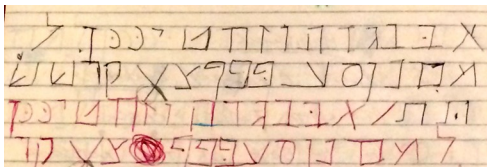 א בּ ב ג ד ה ו ז ח ט י כּ כ ך ל
מ ם נ ן ס ע פּ פ ף צ ץ ק ר שׁ שׂ
ת ת / א בּ ב ג ד ה ו ז ח ט י כּ כ ך
ל מ ם נ ן ס ע פּ פ ף צ ץ ק ר